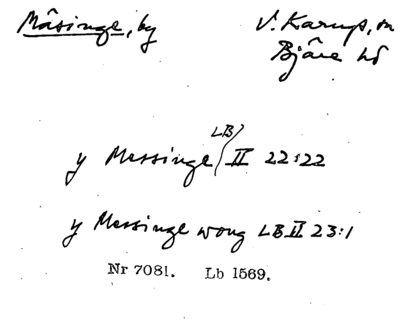 Måsinge, by V. Karup, sn
Bjäre hd
y Messinge LB II 22:22
y Messinge wong LB II 23:1
Nr 7081. Lb 1569.